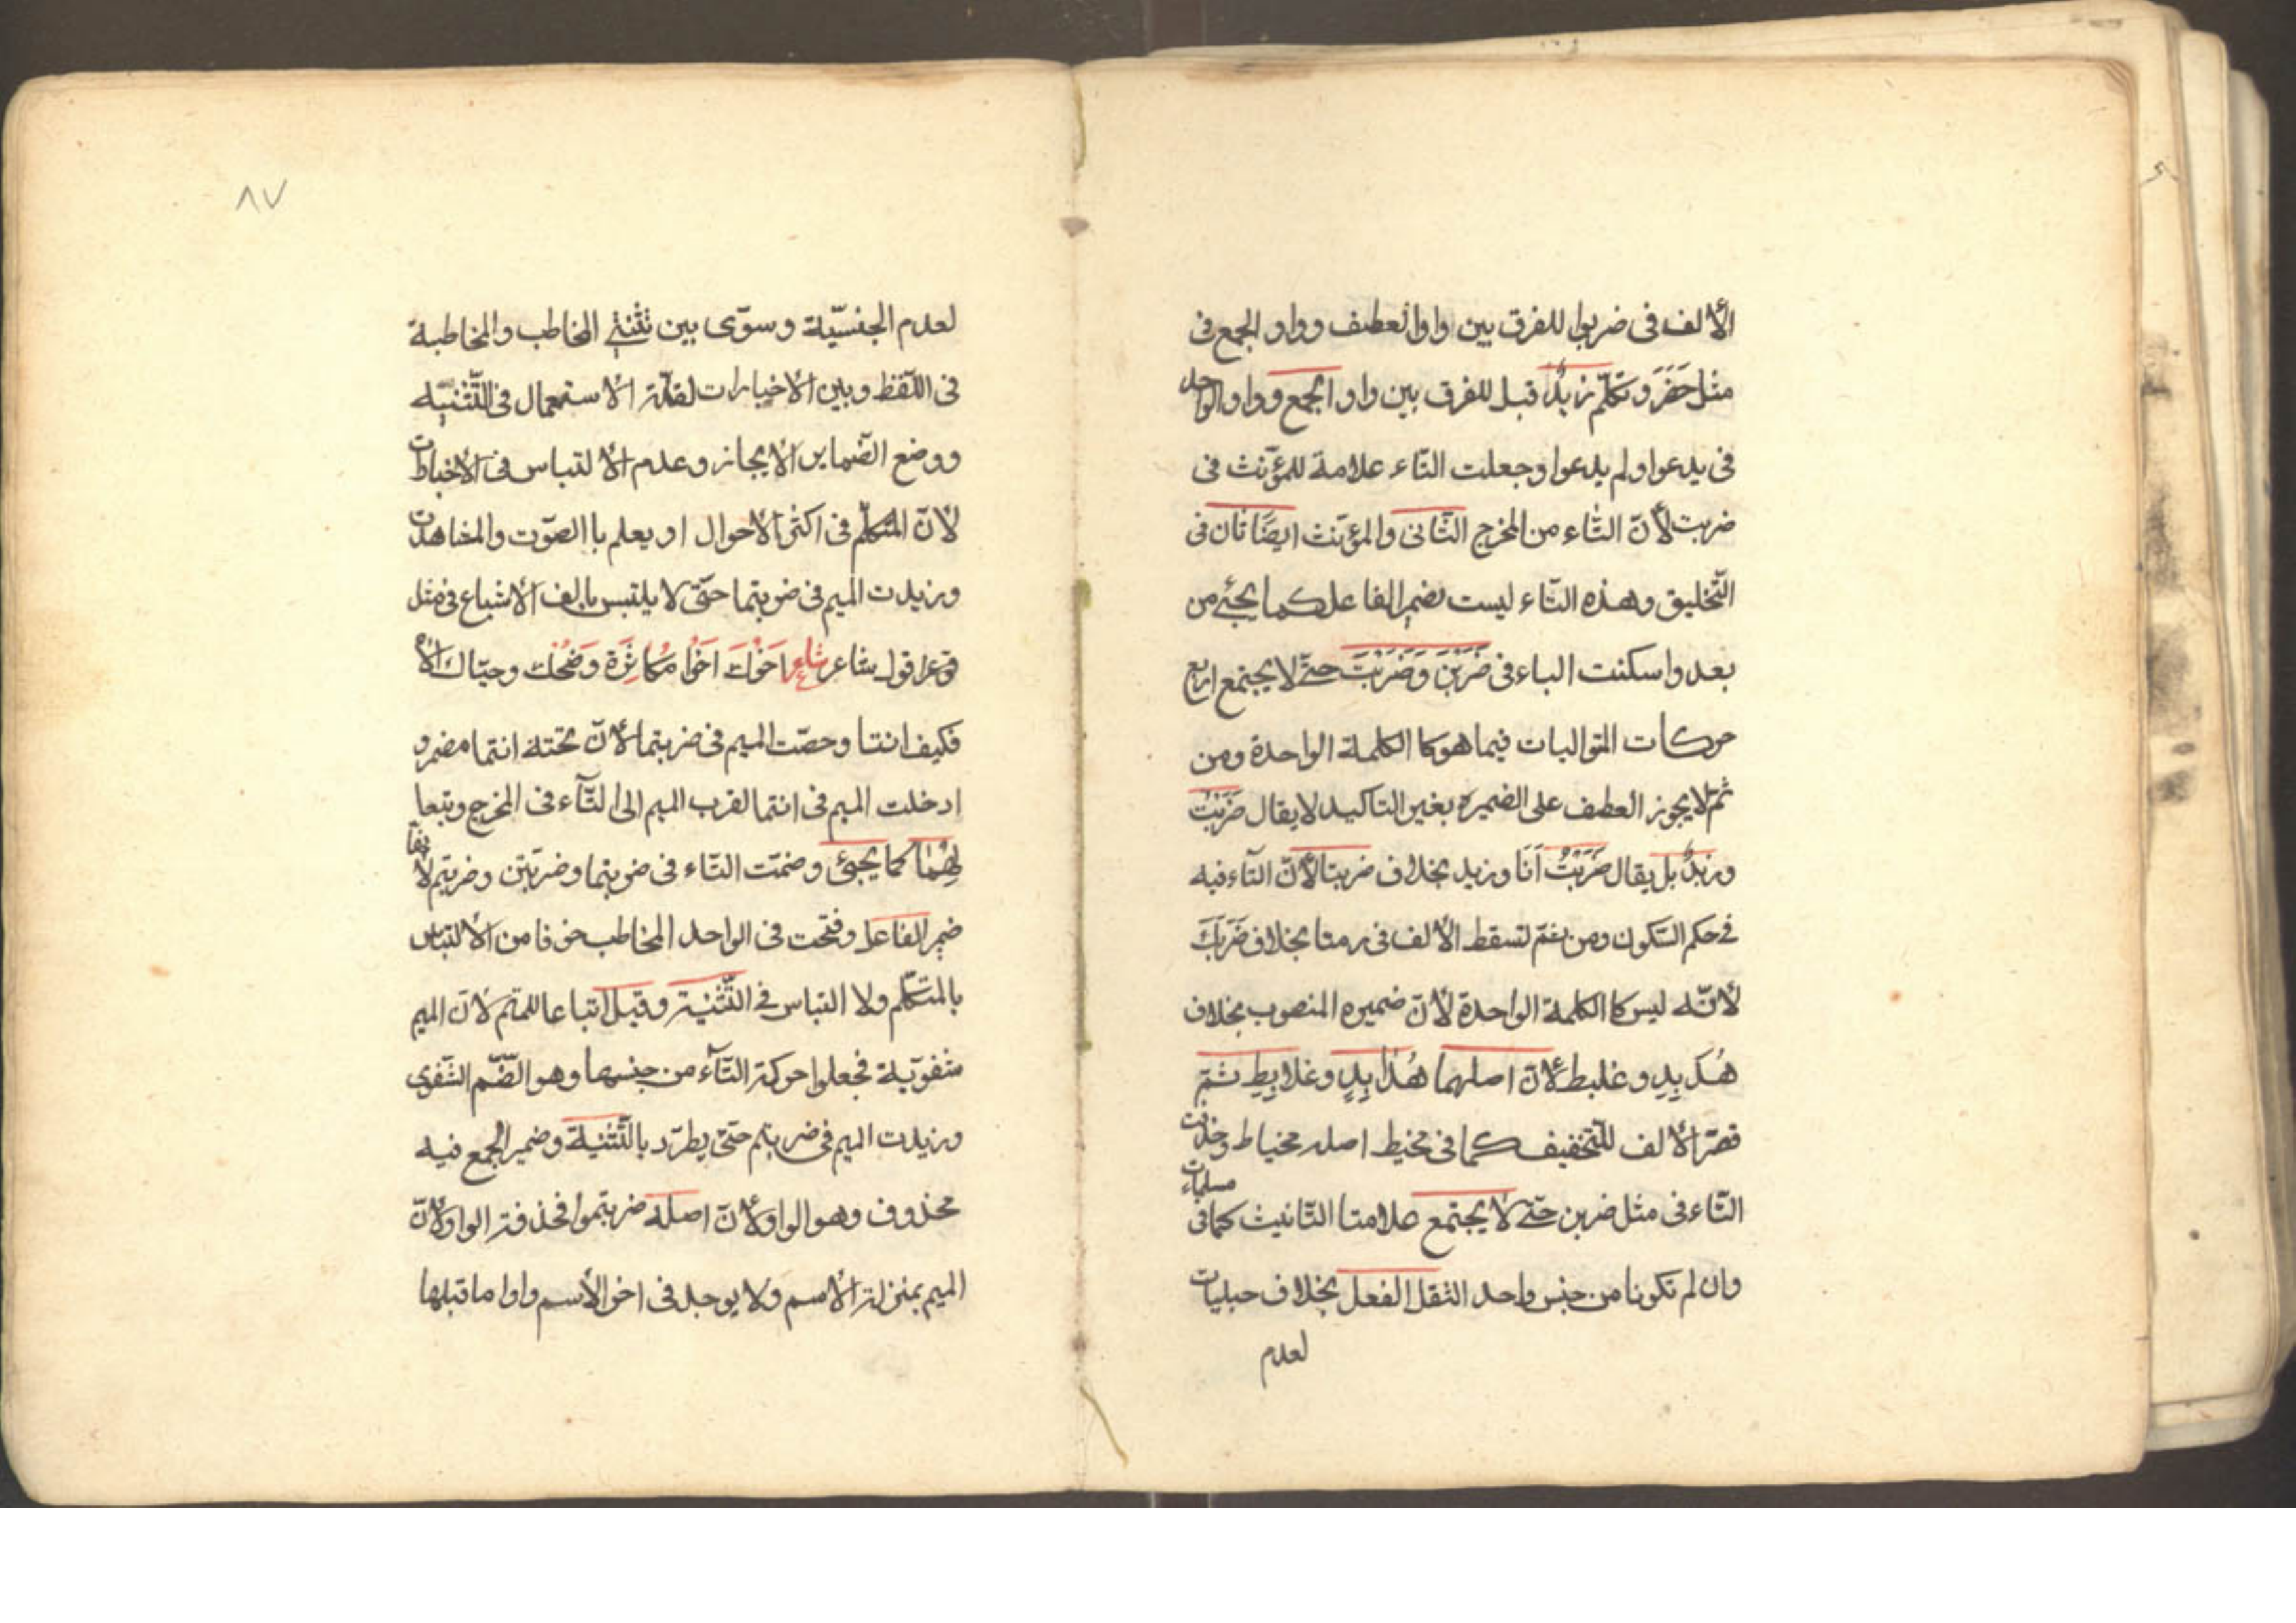 الألف فى ضربوا للفرق بين واو العطف وواو الجمع فى
مثل حَضَرَ وتكلّم زيدٌ قبل للفرق بين واو الجمع وواو الواحد
فى يدعوا ولم يدعوا وجعلت التّاء علامة للمؤنّث فى
ضربت لأنّ التّاء من المخرج الثّانى والمؤنّث ايضًا ثان فى
التّخليق وهذه التّاء ليست بضمير الفاعل كما يجئ من
بعد واسكنت الباء فى ضَرَبْنَ وَضَرَبْتَ حتّى لا يجتمع اربع
حركات المتواليات فيما هو كالكلمة الواحدة ومن
ثمّ لا يجوز العطف على الضميره بغير التاكيد لا يقال ضَرَبْتُ
وزيدٌ بل يقال ضَرَبْتُ اَنَا وزيد بخلاف ضربتا لأنّ التّاء فيه
فى حكم السّكون ومن ثمّ تسقط الألف فى رمتا بخلاف ضَرَبَكَ
لأنّه ليس كا الكلمة الواحدة لأنّ ضميره المنصوب بخلاف
هُدَبِدٍ وغلبط لأنّ اصلهما هُدَابِدٍ وغلابِطِ ثمّ
قصّر الألف للتّخفيف كما فى مخيط اصله مخياط وحذفت
التّاء فى مثل ضربن حتّى لا يجتمع علامتا التّانيث كما فى مسلمات
وان لم تكونا من جنس واحد الثقل الفعل بخلاف حبليات
لعدم
٨٧
لعدم الجنسيّة وسوّى بين تثنيتى المخاطب والمخاطبة
فى اللّفظ وبين الاخبارات لقلّة الاستعمال فى التّثنيّة
ووضع الضّماير الايجاز وعدم الالتباس فى الاخبارات
لأنّ المتكلّم فى اكثر الاحوال او يعلم باالصّوت والمشاهدت
وزيدت الميم فى ضربتما حتّى لا يلتبس بالف الاشباع فى مثل
قول شاعر شاعر اَخُوكَ اَخُوا مُكَاشَرَةٍ وَضَحُكٍ وحيّاك الاله
فكيف انتا وخصّت الميم فى ضربتما لأنّ تحته انتما مضمر و
ادخلت الميم فى انتما لقرب الميم الى التّآء فى المخرج وتبعا
لِهُمَا كما يجئ وضمّت التّاء فى ضربتما وضربتن وضربتم لأنّها
ضمير الفاعل وفتحت فى الواحد المخاطب خوفا من الالتباس
بالمتكلّم ولا التباس فى التّثنية وقيل اتباعا للميم لأنّ الميم
شفويّة فجعلوا حركة التّآء من جنسها وهو الضّمّ الشّفوى
وزيدت الميم فى ضربتم حتّى يطرّد بالتّثنية وضمير الجمع فيه
محذوف وهو الواو لأنّ اصله ضربتموا فحذفت الواو لأنّ
الميم بمنزلة الاسم ولا يوجد فى اخر الأسم واوا ما قبلها